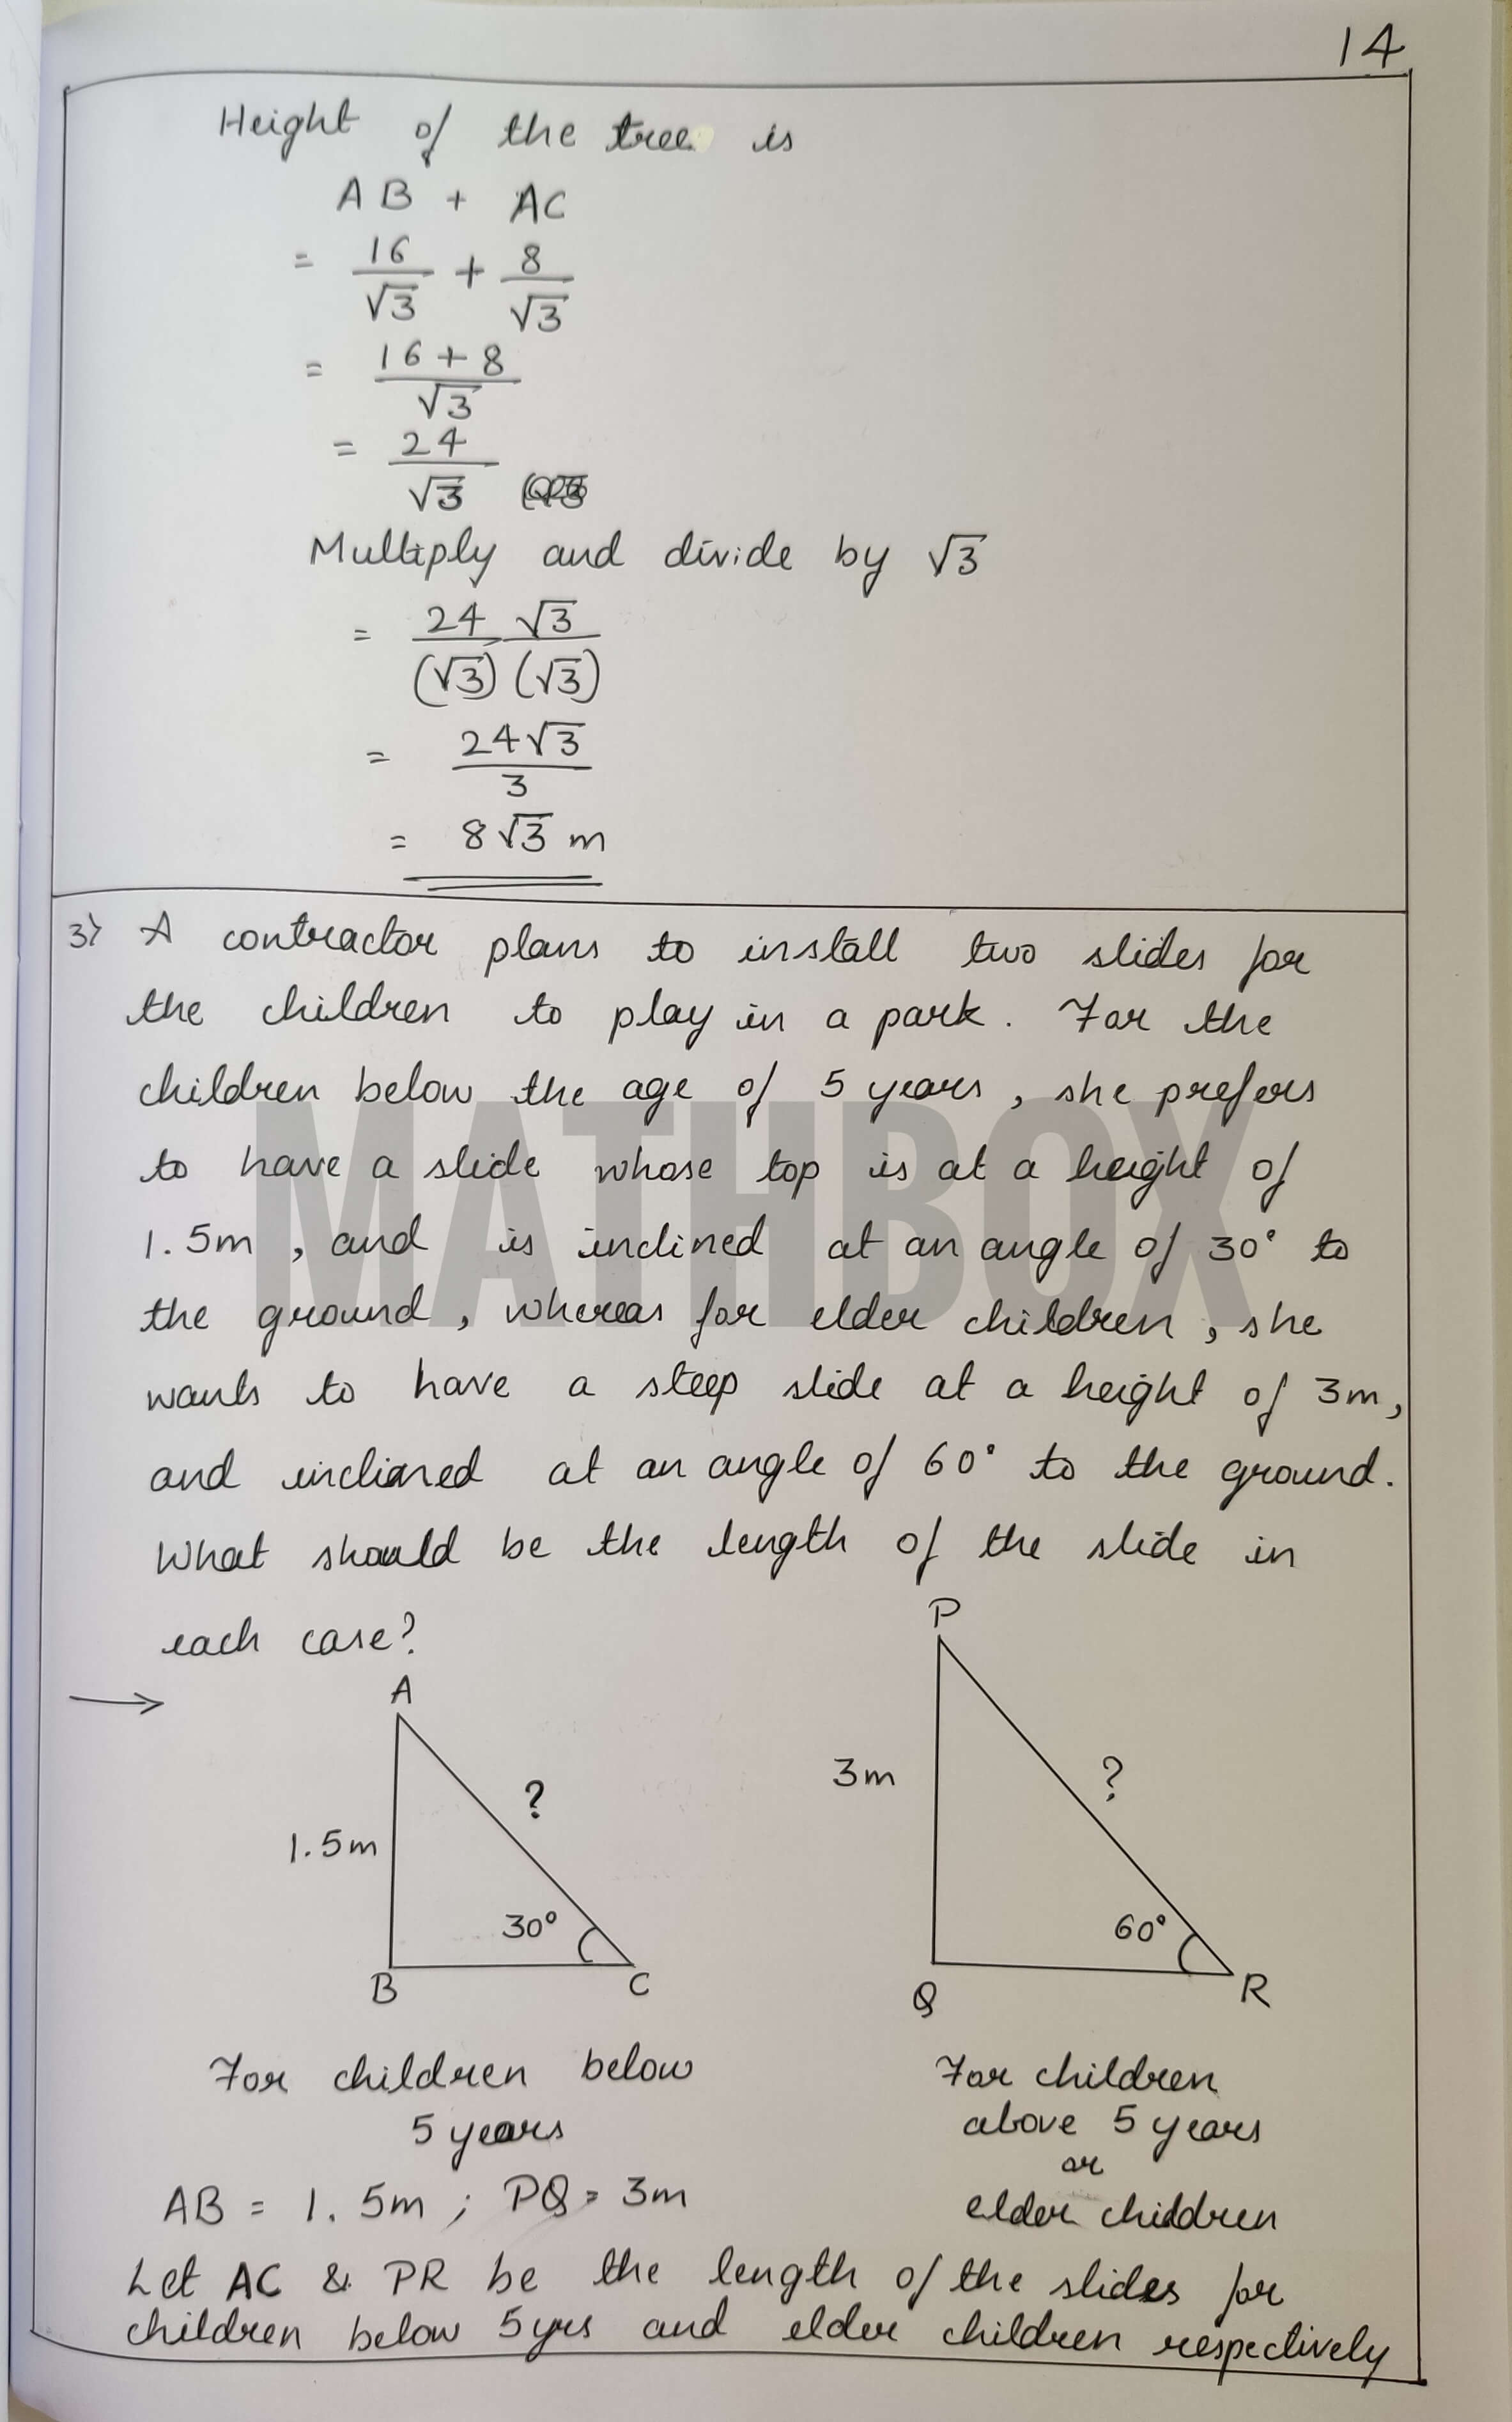 14
Height of the tree is
AB + AC
= 16/√3 + 8/√3
= 16+8/√3
= 24/√3
Multiply and divide by √3
= 24 √3/(√3) (√3)
= 24√3/3
= 8√3 m
3) A contractor plans to install two slides for
the children to play in a park. For the
children below the age of 5 years, she prefers
to have a slide whose top is at a height of
1.5m, and is inclined at an angle of 30° to
the ground, whereas for elder children, she
wants to have a steep slide at a height of 3m,
and inclined at an angle of 60° to the ground.
What should be the length of the slide in
each case?
MATHBOX
→
A
1.5m
?
30°
B
C
P
3m
?
60°
Q
R
For children below
5 years
For children
above 5 years
or
elder children
AB = 1.5m ; PQ = 3m
Let AC & PR be the length of the slides for
children below 5yrs and elder children respectively